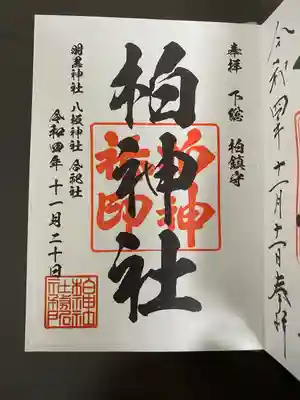 令和四年十一月十一日奉拝
奉拝 下総 柏鎮守
柏神社
羽黒神社 八坂神社 合祀社
令和四年 十一月二十日
柏神社
社務所印